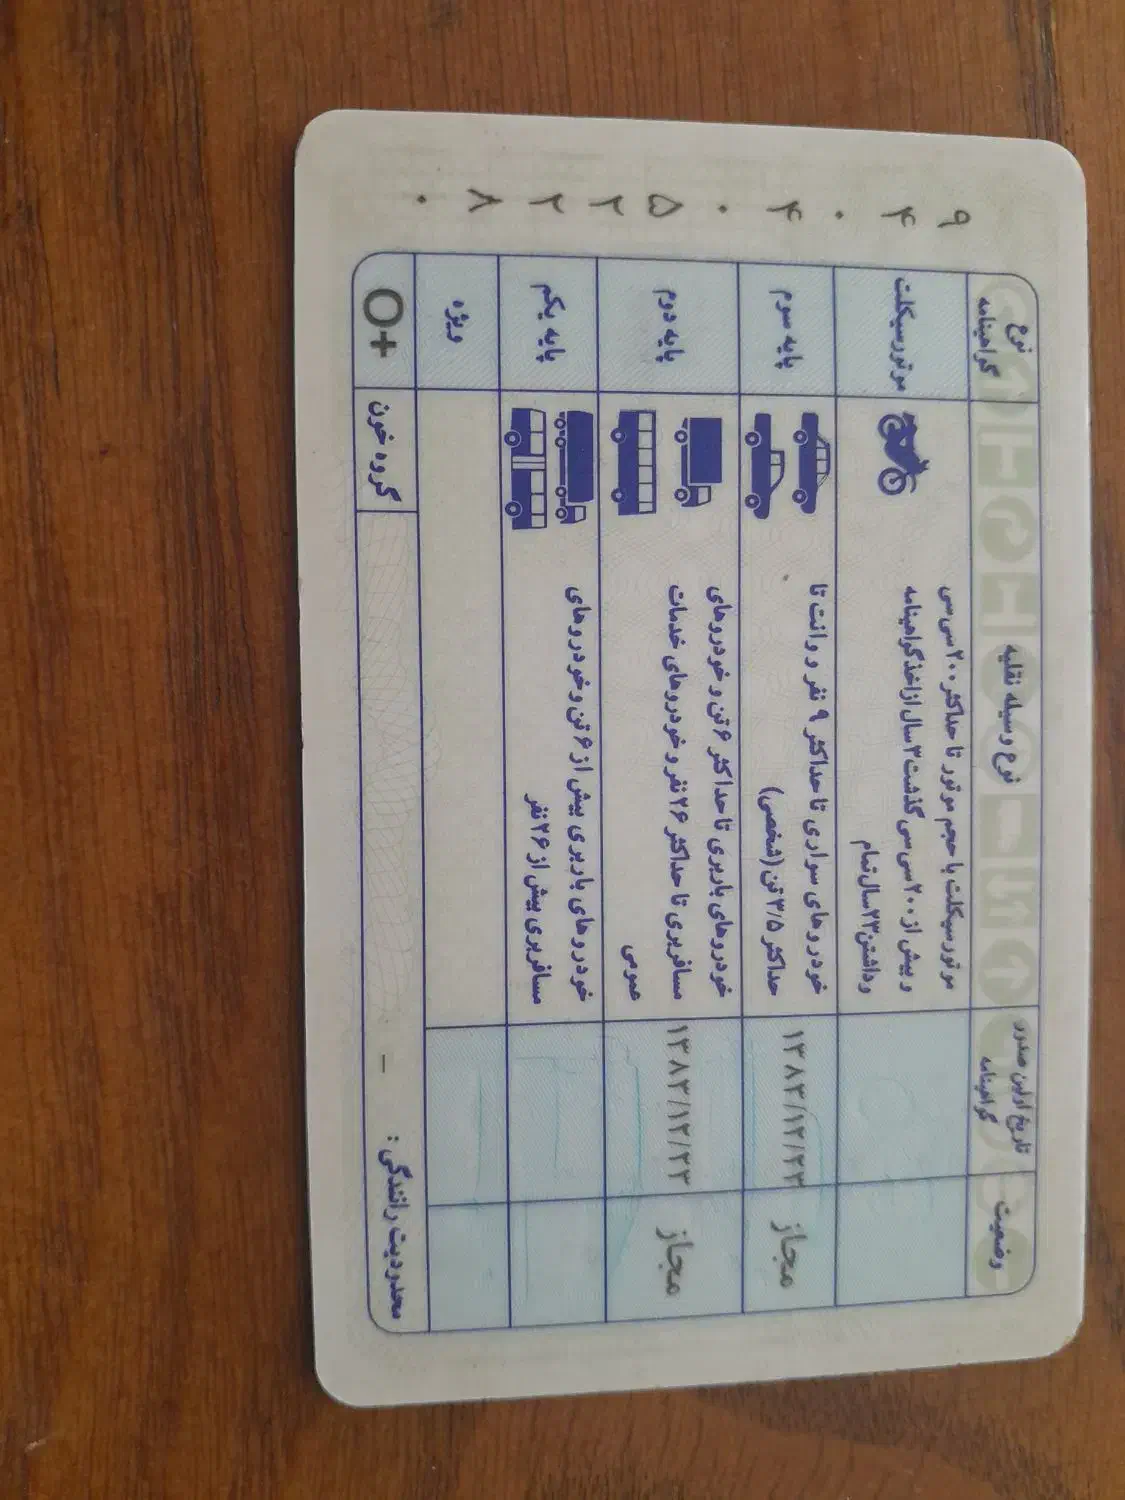 ۹۴۰۴۰۵۲۲۸۰
وضعیت
تاریخ اولین صدور
گواهینامه
نوع وسیله نقلیه
نوع
گواهینامه
موتورسیکلت با حجم موتور تا حداکثر ۲۰۰ سی سی
و بیش از ۲۰۰ سی سی گذشت ۳ سال از اخذ گواهینامه
و داشتن ۲۳ سال تمام
موتورسیکلت
مجاز
۱۳۸۳/۱۲/۲۳
خودروهای سواری تا حداکثر ۹ نفر و وانت تا
حداکثر ۳/۵ تن (شخصی)
پایه سوم
مجاز
۱۳۸۳/۱۲/۲۳
خودروهای باربری تا حداکثر ۶ تن و خودروهای
مسافربری تا حداکثر ۲۶ نفر و خودروهای خدمات
عمومی
پایه دوم
خودروهای باربری بیش از ۶ تن و خودروهای
مسافربری بیش از ۲۶ نفر
پایه یکم
ویژه
محدودیت رانندگی : -
گروه خون
O+